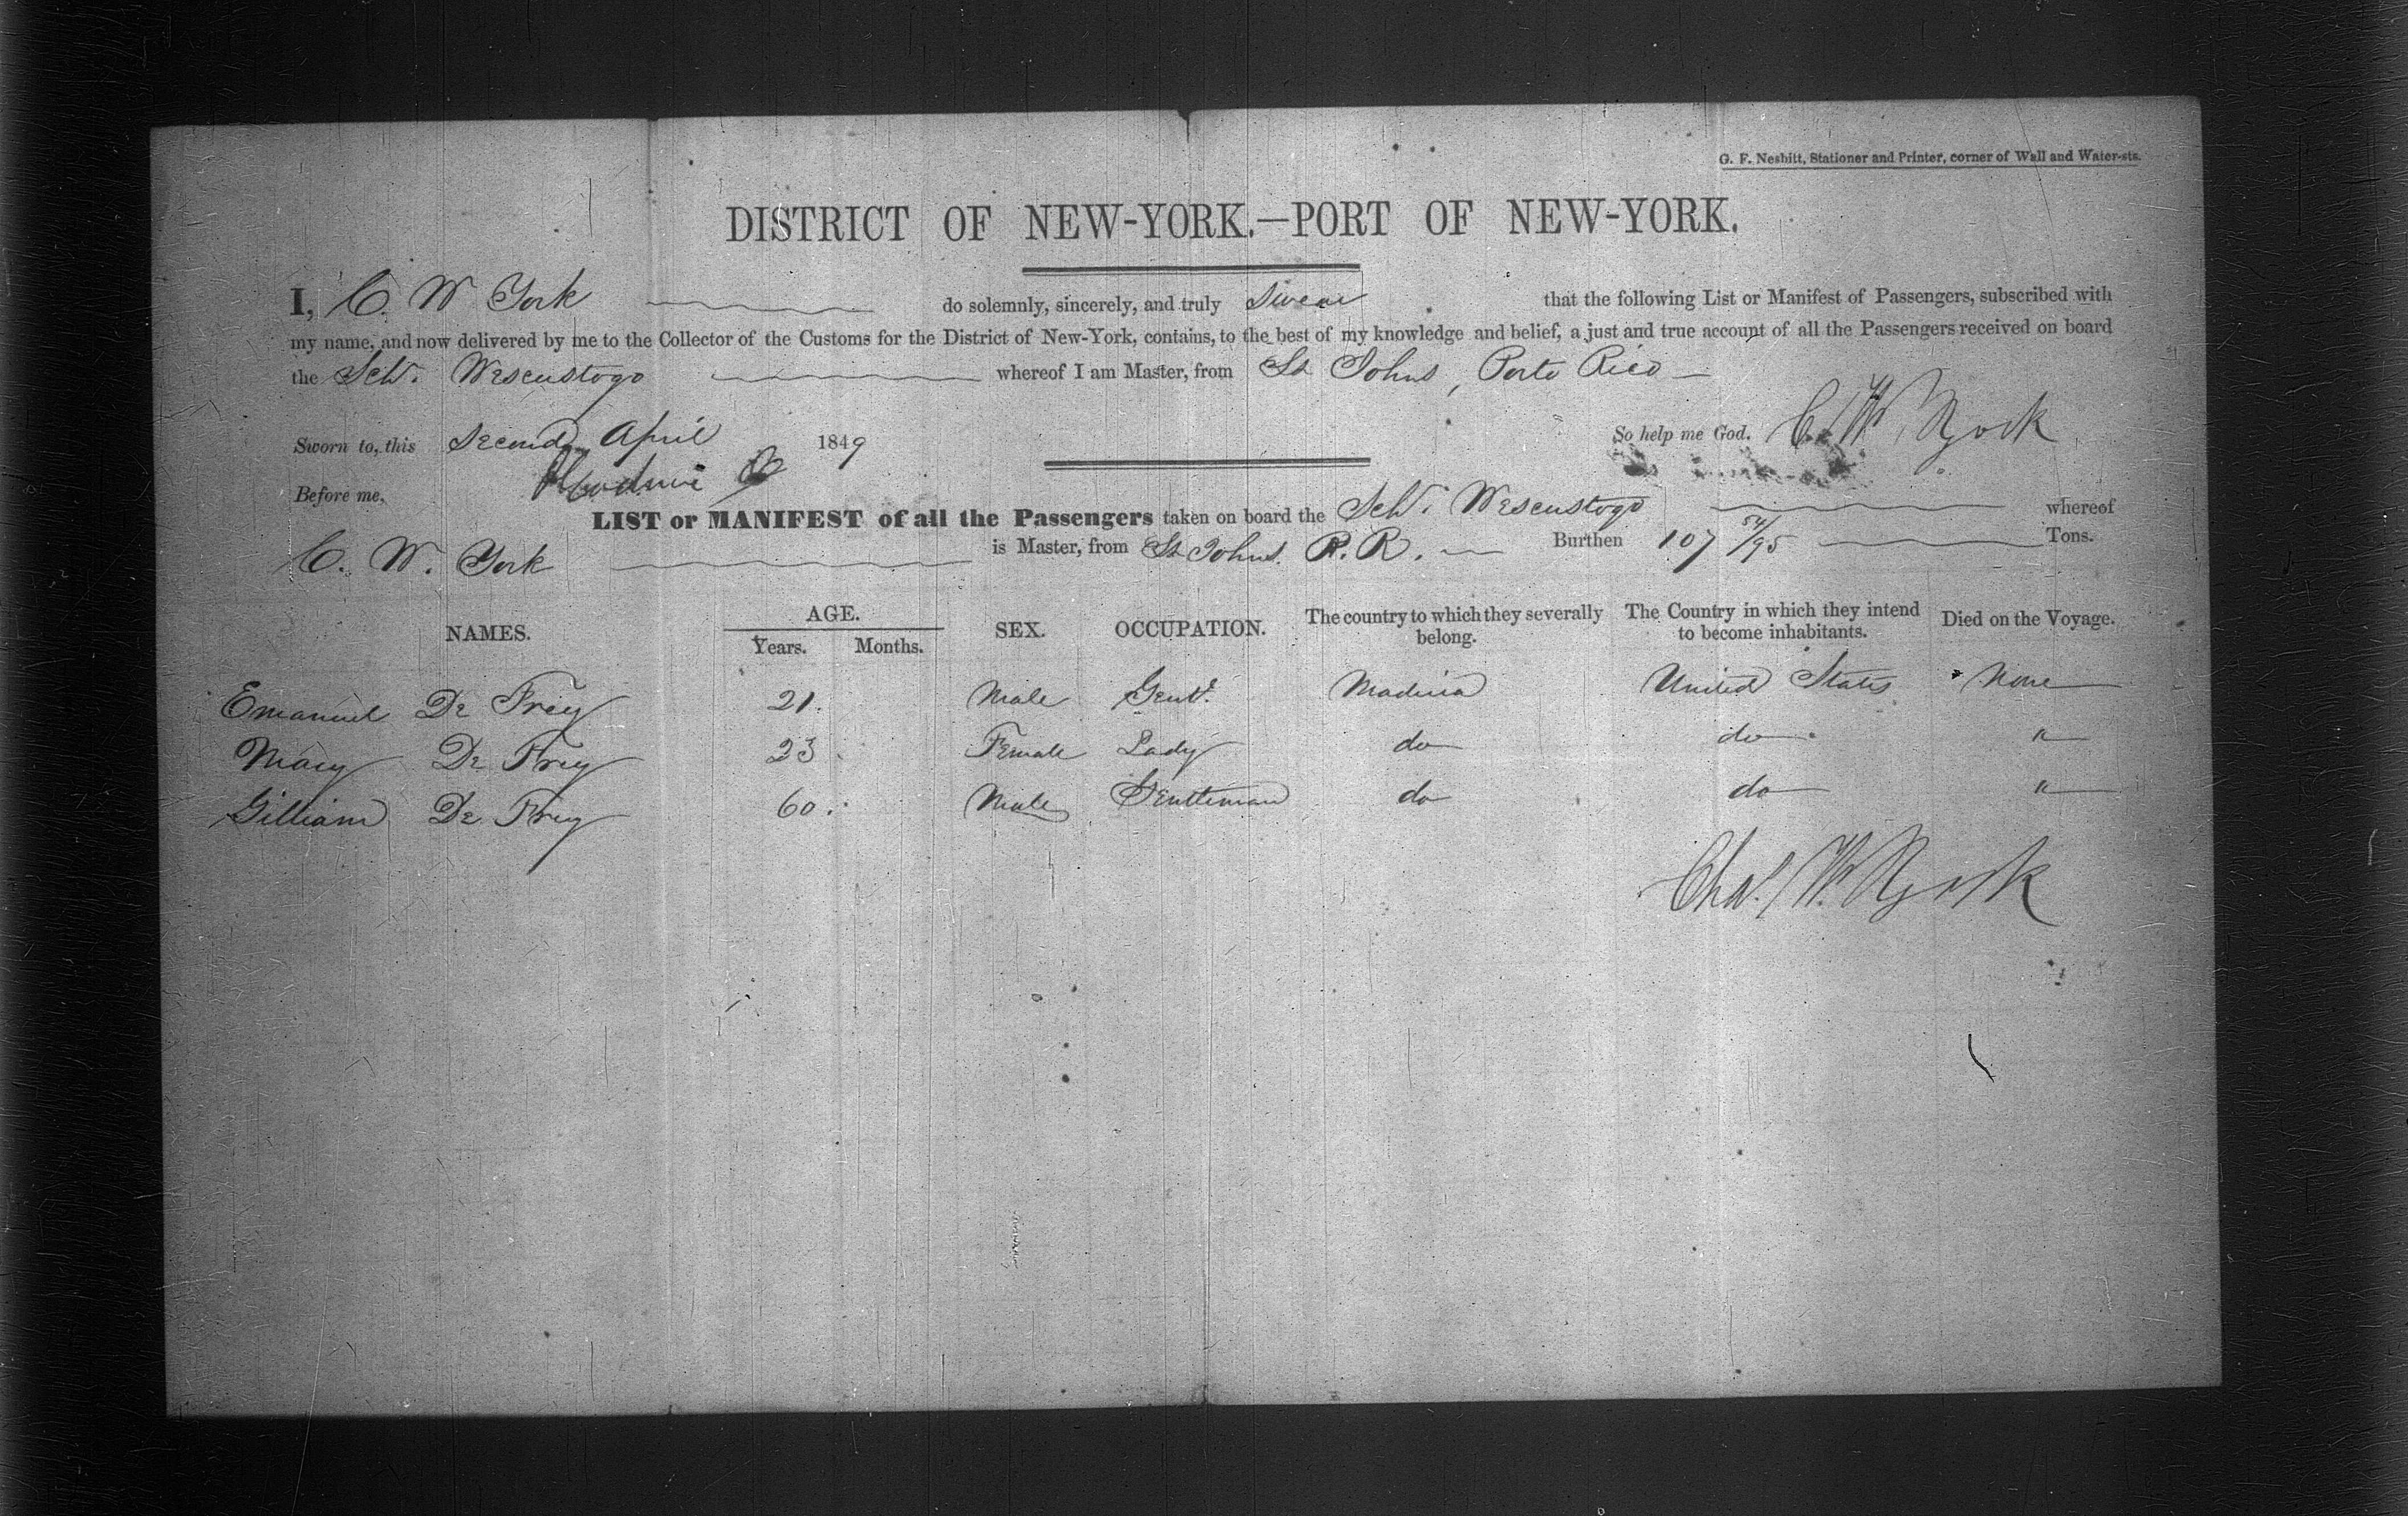 G. F. Nesbitt, Stationer and Printer, corner of Wall and Water-sts.
DISTRICT OF NEW-YORK.—PORT OF NEW-YORK.
I, C. W York do solemnly, sincerely, and truly Swear that the following List or Manifest of Passengers, subscribed with
my name, and now delivered by me to the Collector of the Customs for the District of New-York, contains, to the best of my knowledge and belief, a just and true account of all the Passengers received on board
the Schr. Wescustogo whereof I am Master, from St Johns, Porto Rico
Sworn to, this Second April 1849 So help me God. C. W. York
Before me,
LIST or MANIFEST of all the Passengers taken on board the Schr. Wescustogo whereof
C. W. York is Master, from St Johns. P. R. Burthen 107 54/95 Tons.
NAMES. AGE. Years. Months. SEX. OCCUPATION. The country to which they severally belong. The Country in which they intend to become inhabitants. Died on the Voyage.
Emanuel De Frey 21. Male Gent. Madeira United States None
Mary De Frey 23 Female Lady do do "
Gilliam De Frey 60. Male Gentleman do do "
Chas. W. York